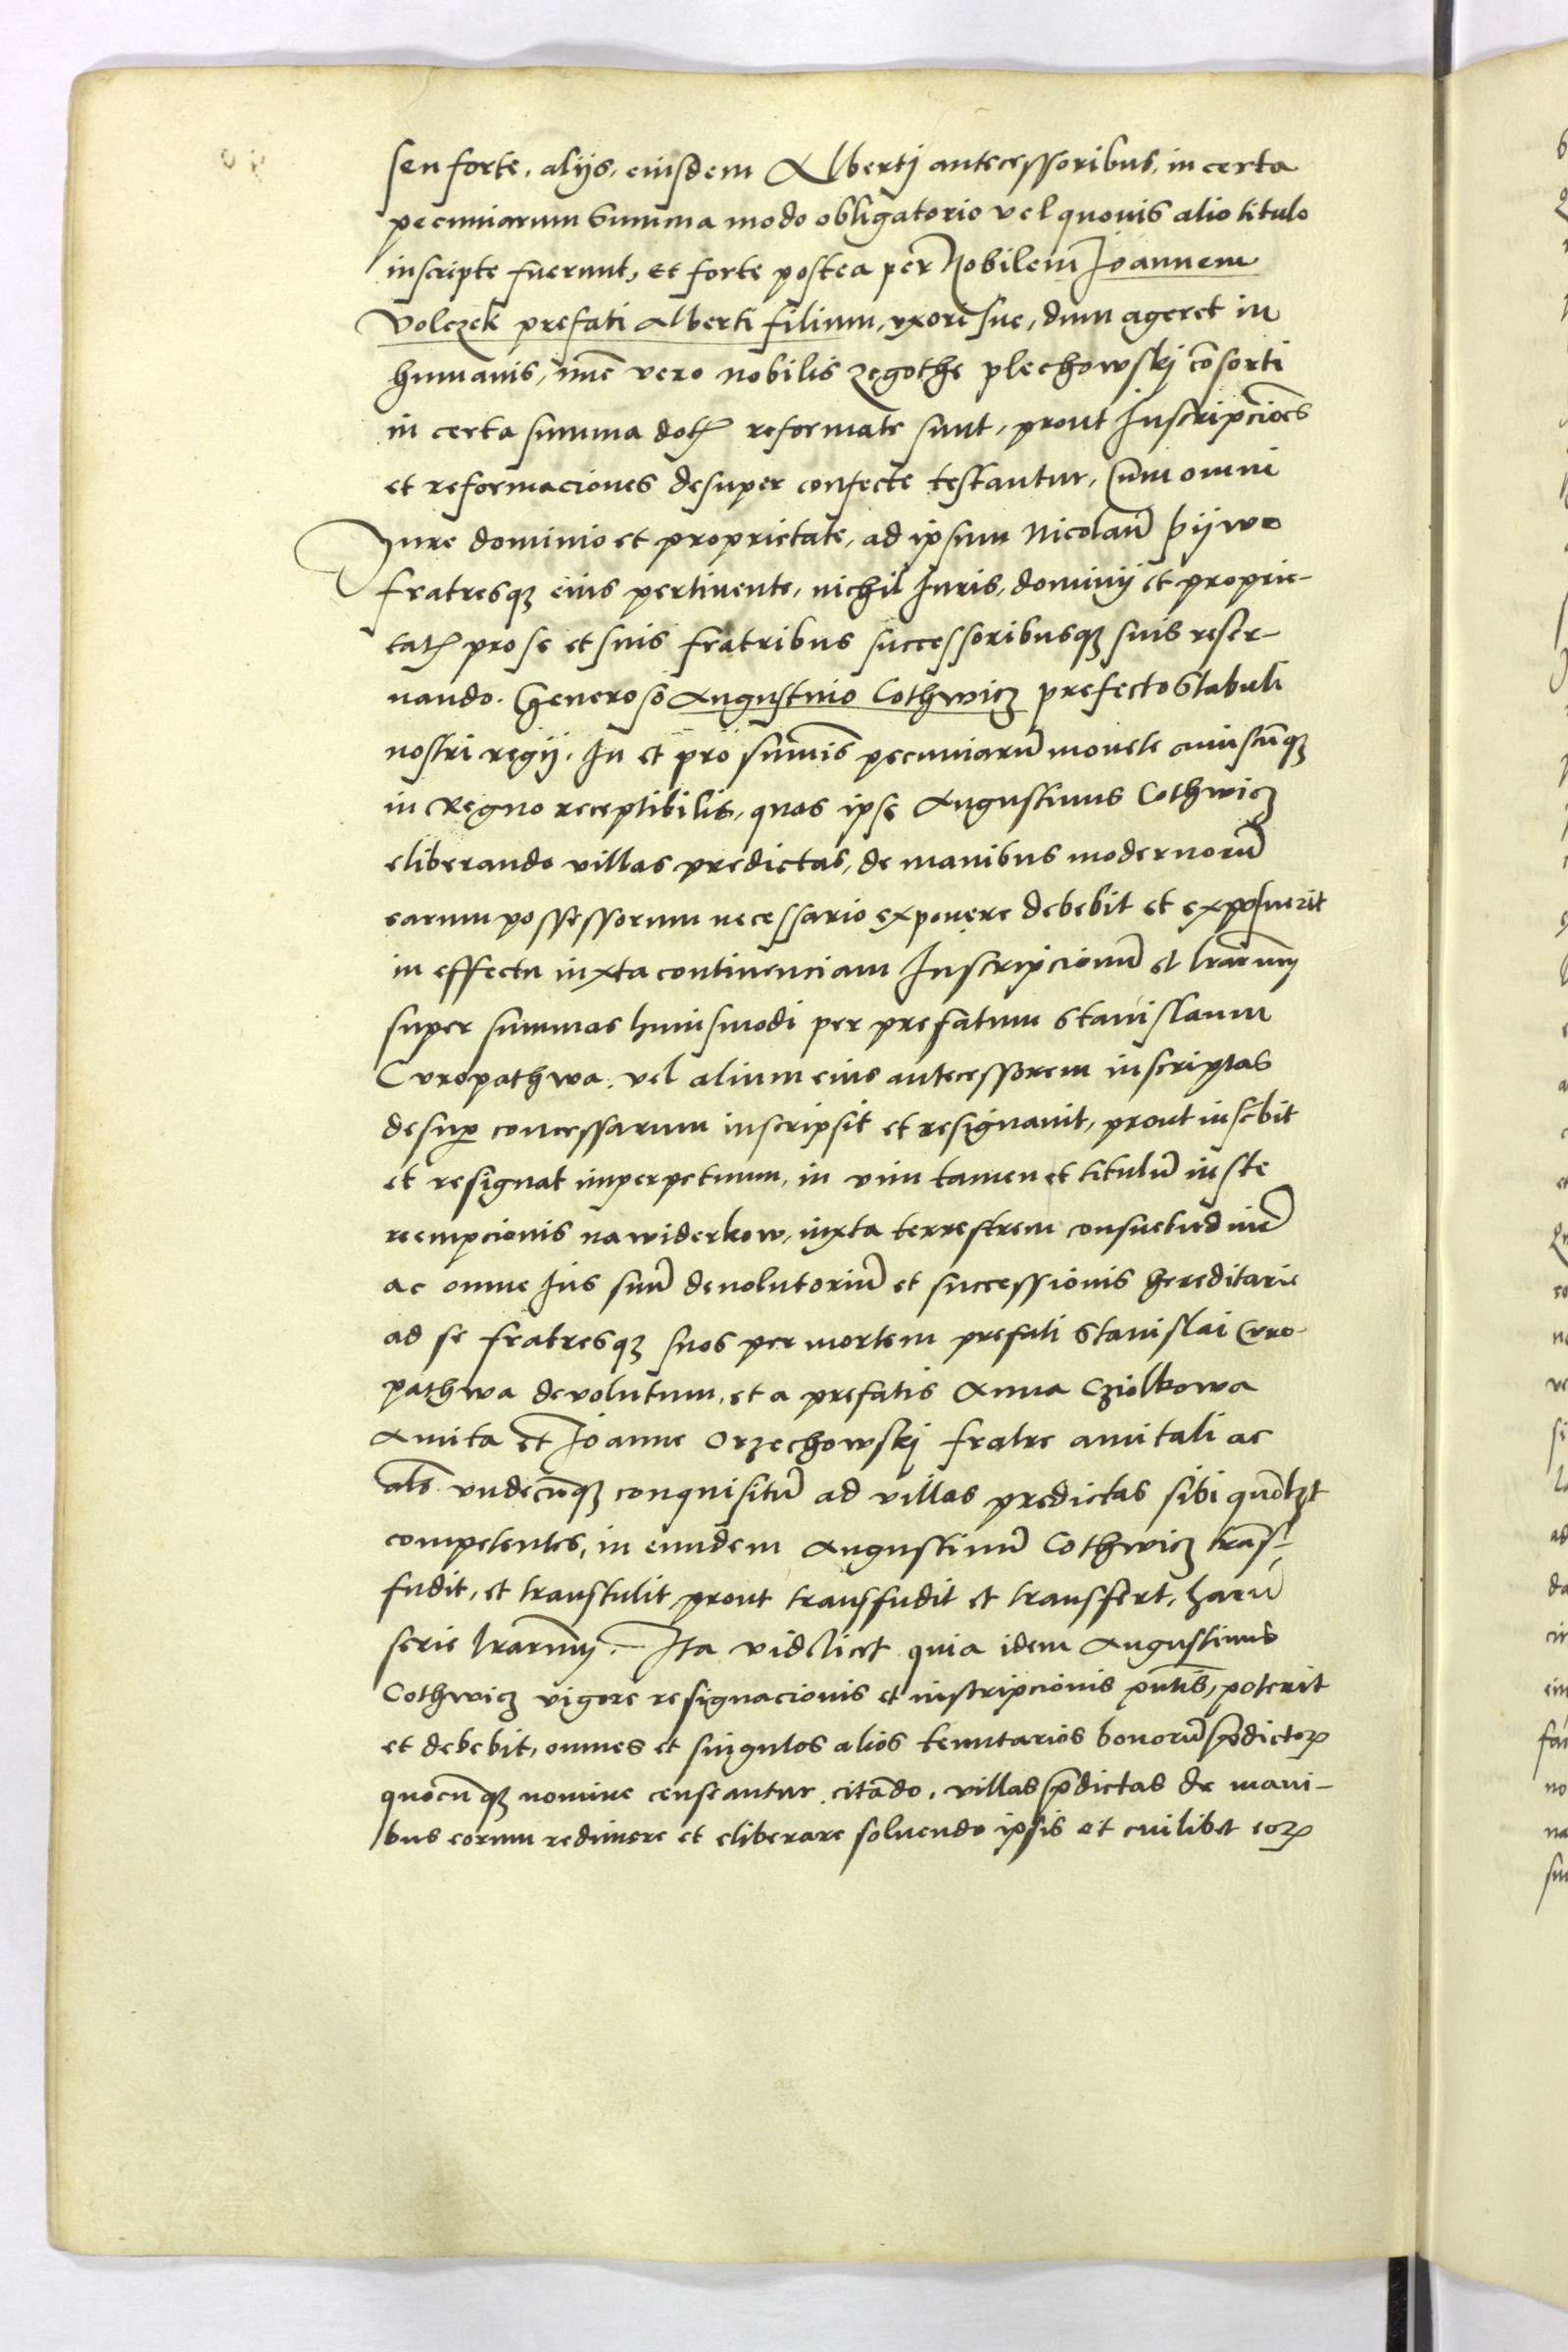 seu forte, alijs, eiusdem Albertj antecessoribus, in certa
pecuniarum Summa modo obligatorio vel quouis alio titulo
inscripte fuerunt, et forte postea per Nobilem Joannem
Volczek prefati Alberti filium, vxori sue, dum ageret in
humanis, nuc̄ vero nobilis zegothe plechowskj cōsorti
in certa summa dotꝭ reformate sunt, prout Inscripciōes
et reformaciones desuper confecte testantur, Cum omni
Jure dominio et proprietate, ad ipsum Nicolaū pijwo
fratresqꝫ eius pertinente, nichil Iuris, dominij et proprie-
tatꝭ pro se et suis fratribus successoribusqꝫ suis reser-
uando. Generoso Augustino Cothwicz prefecto Stabuli
nostri regij. In et pro sum̄is pecuniarū monete cuiuscūqꝫ
in Regno receptibilis, quas ipse Augustinus Cothwicz
eliberando villas predictas, de manibus modernorū
earum possessorum necessario exponere debebit et exposuerit
in effectu iuxta continenciam Inscripcionū et lrārum
super summas huiusmodi per prefatum Stanislaum
Curopathwa. vel alium eius antecessorem inscriptas
desup̱ concessarum inscripsit et resignauit, prout inscᷓbit
et resignat imperpetuum, in vim tamen et titulū iuste
reempcionis na widerkow, iuxta terrestrem consuetudinē
ac omne Ius suū deuolutoriū et successionis hereditarie
ad se fratresqꝫ suos per mortem prefati Stanislai Curo-
pathwa devolutum, et a prefatis Anna Cziolkowa
Amita et Joanne Orzechowskj fratre amitali ac
als̄ vndecūqꝫ conquisitū ad villas predictas sibi quōlꝫt
competentes, in eundem Augustinū Cothwicz trās-
fudit, et transtulit prout transfudit et transfert, harū
serie lrārum. Ita videlicet quia idem Augustinus
Cothwicz vigore resignacionis et inscripcionis pn̄tis, poterit
et debebit, omnes et singulos alios tenutarios bonorū p̄dictoꝝ
quocūqꝫ nomine censeantur citādo, villas p̄dictas de mani-
bus eorum redimere et eliberare soluendo ipsis et cuilibet eoꝝ